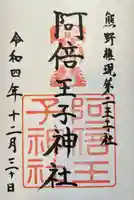 熊野権現第二王子社
阿倍王子神社
阿倍王
子神社
令和四年十二月三十日